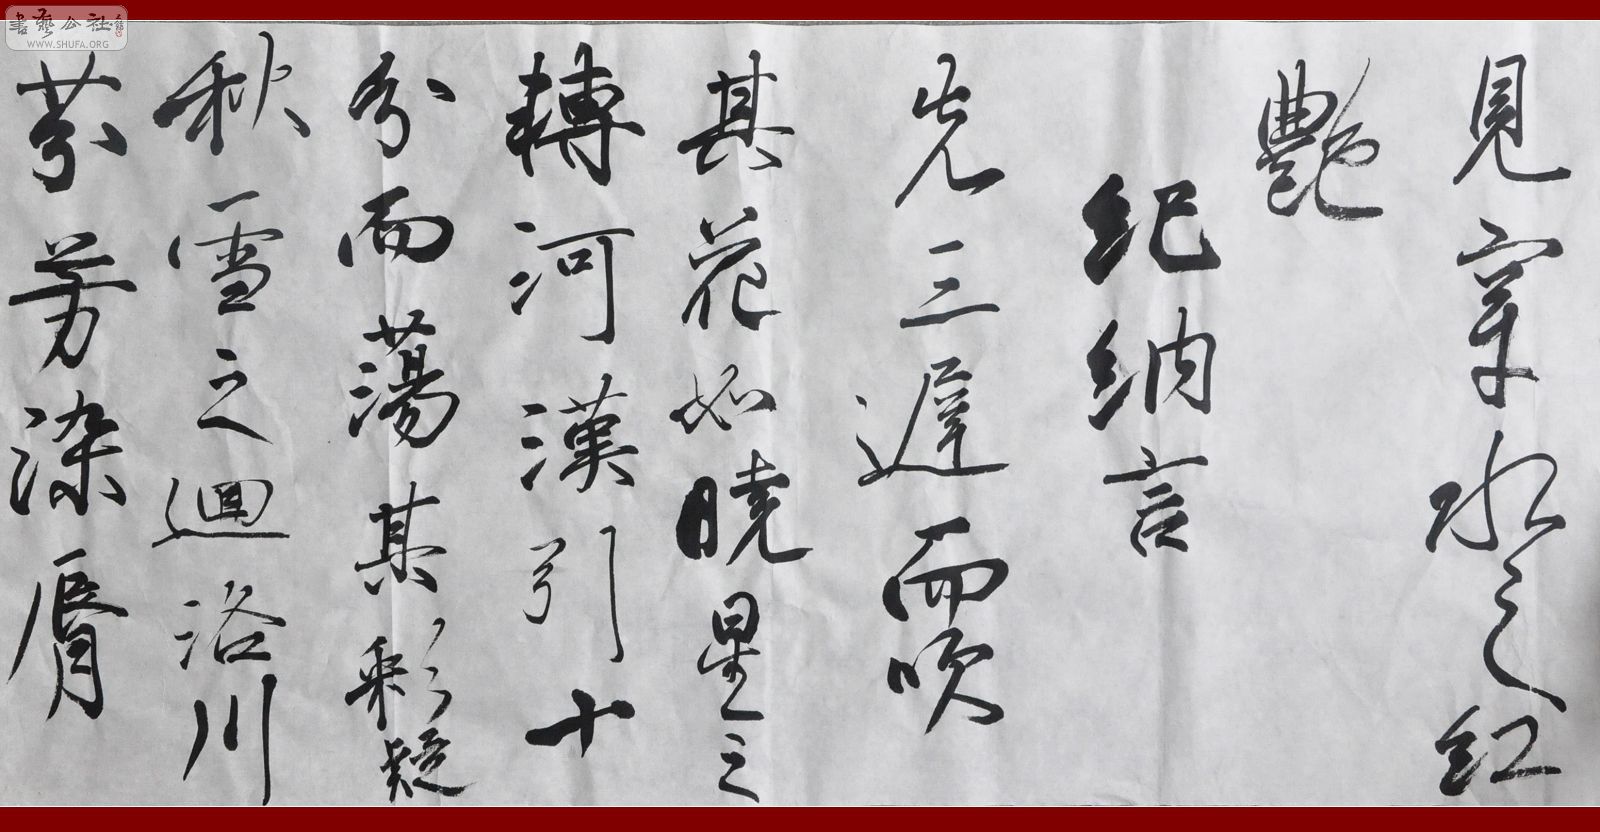 見寒水之紅
艷
紀納言
先三遲而吹
其花如曉星之
轉河漢引十
分而蕩其彩疑
秋雪之廻洛川
芬芳染脣
書藝公社
WWW.SHUFA.ORG